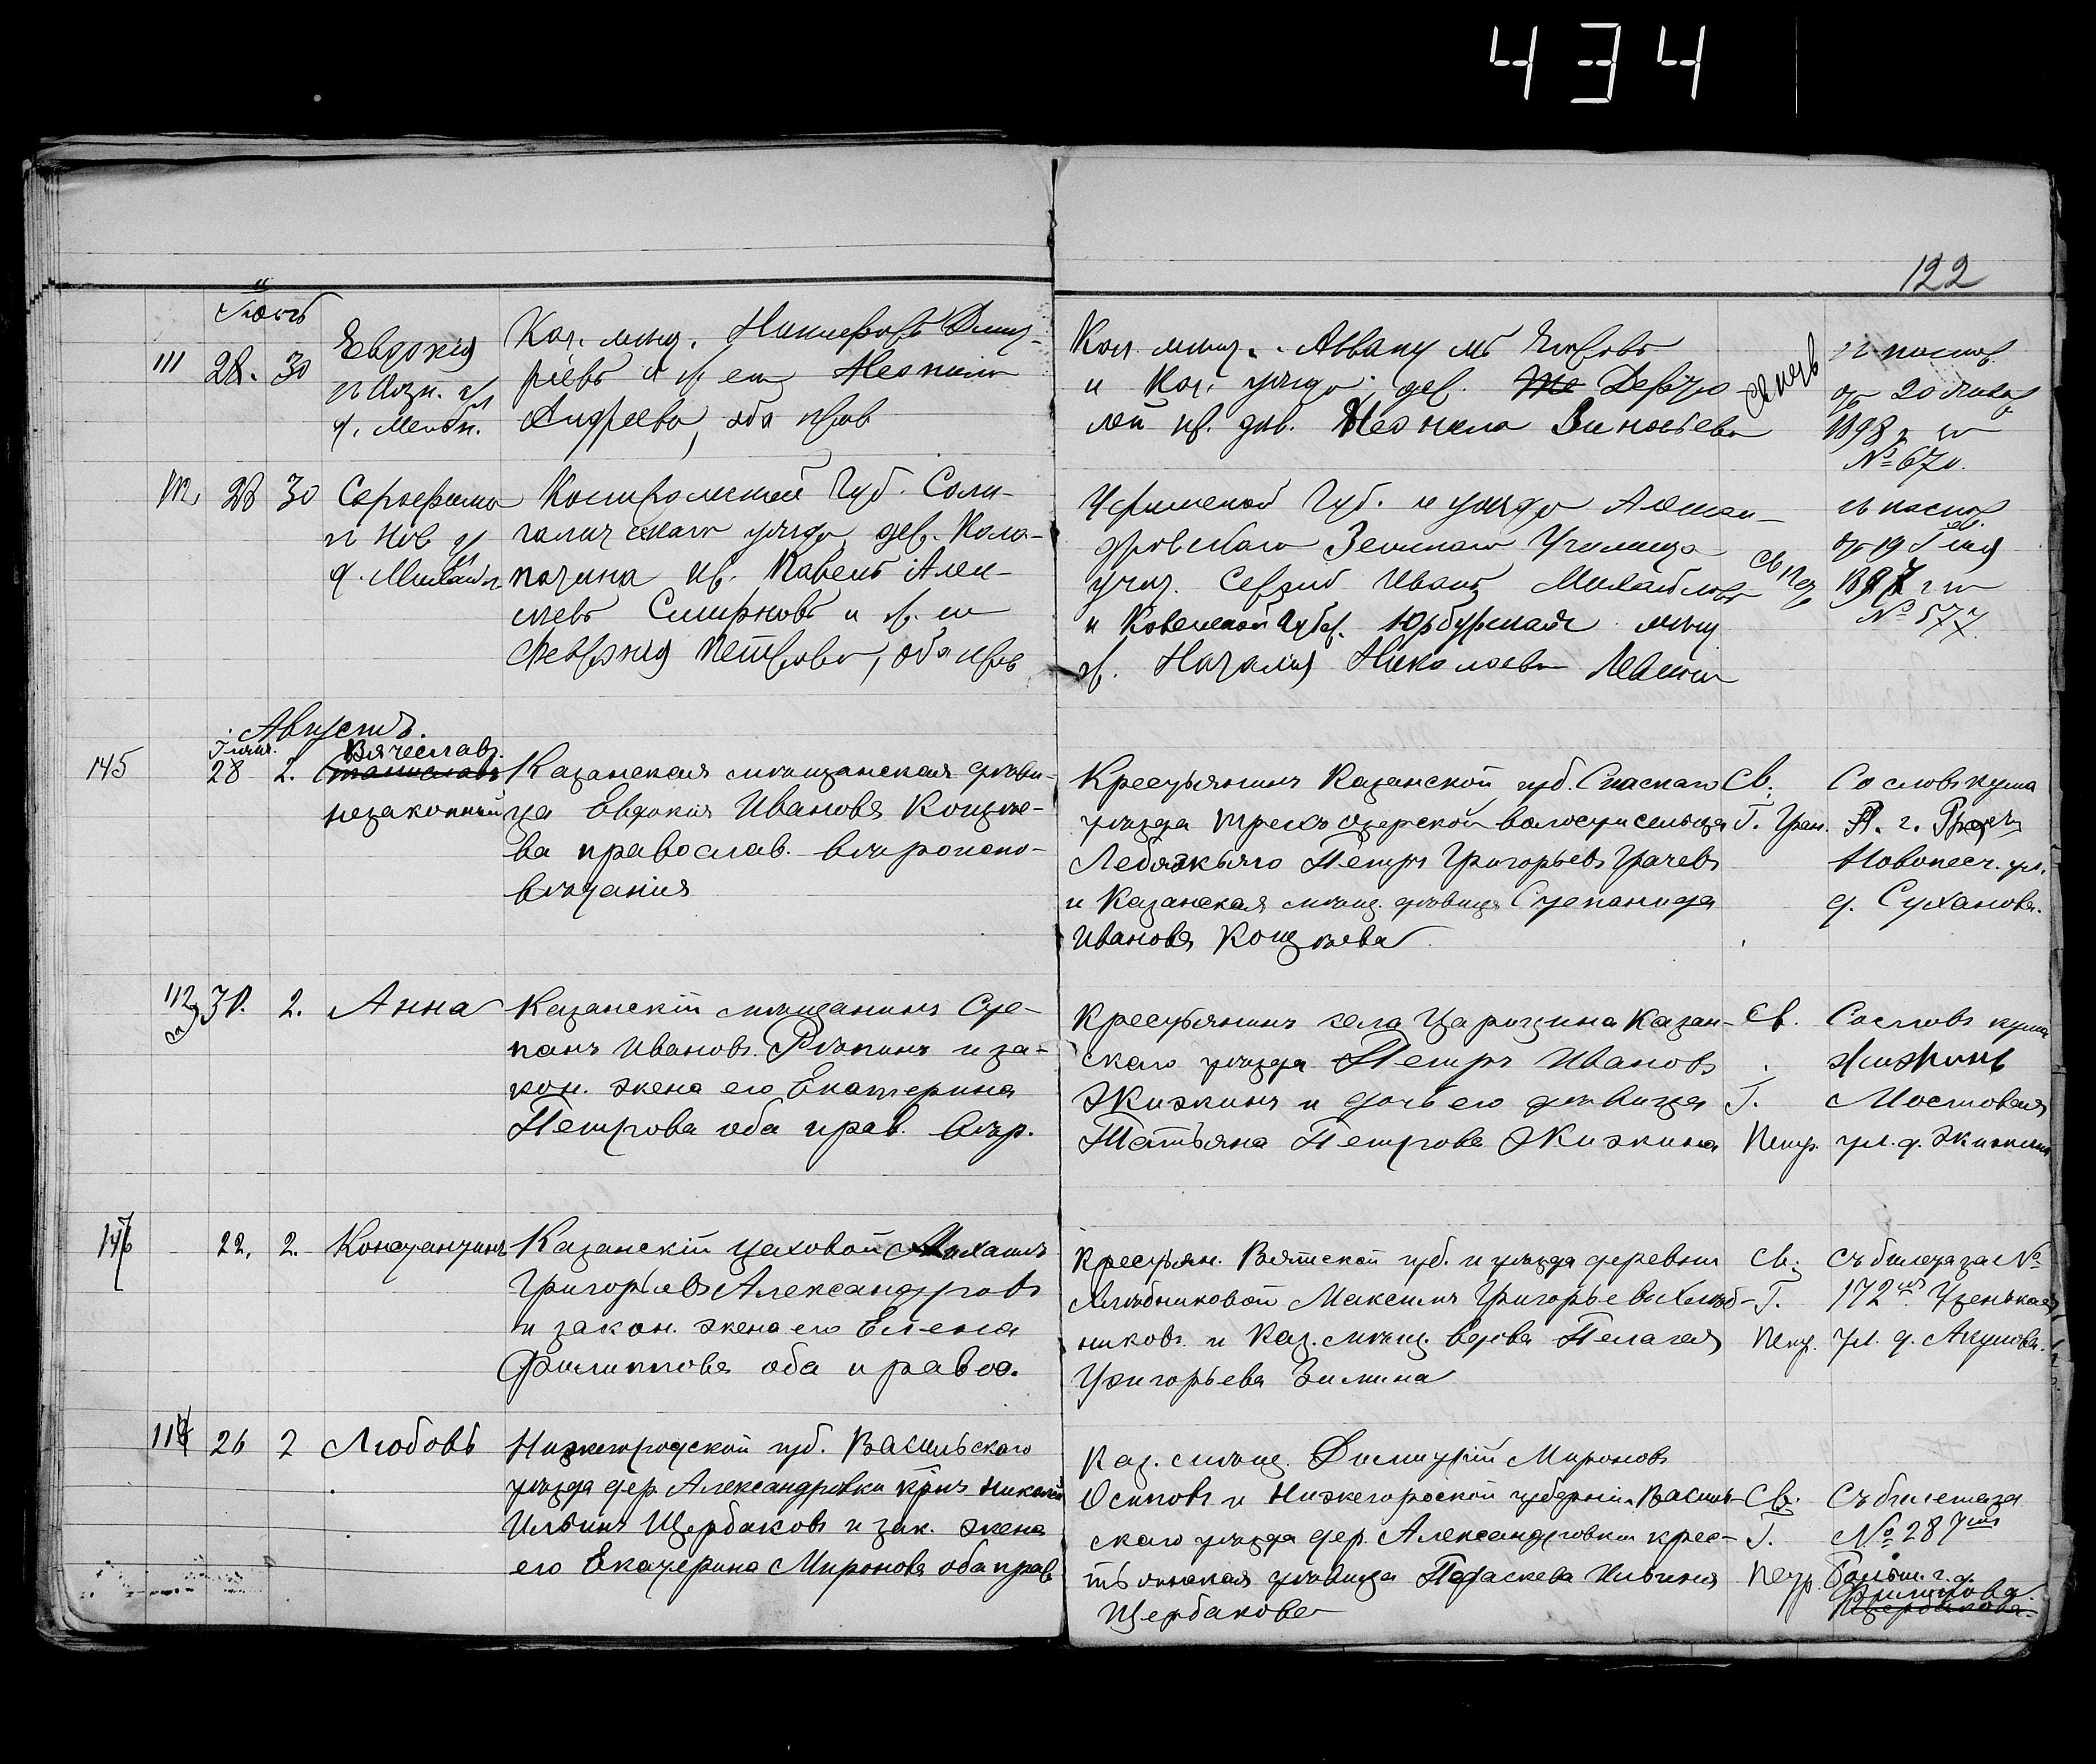 434
122
Июль
111 28. 30 Евдокія
Каз. мѣщ. Никифоръ Дмит-
ріевъ и з. ж. ег
Андреева, оба прав
Каз. мѣщ. Аввакумъ Яковлевъ
и Каз. уѣзда, дер.
кр. дев. Зиновьева
по паспор.
от 20 Январ
1898 г. за
№ 670.
28 30 Серафима
Костромской Губ. Соли-
галичскаго уѣзда, дер. Коло-
кр. Павелъ Алек-
сѣевъ Смирновъ и з. ж. ег
Февронія Петрова, оба прав
Уфимской Губ. и уѣзда Алексан-
дровскаго Земскаго Училища
учит. Сергій Иванъ Михайловъ
и Ковенской Губер. Юрбургская мѣщ
д. Наталія Николаева Левина
по паспор.
от 19
1897 г за
№ 577
Августъ.
145 Іюля. 28 2. Вячеславъ
Станиславъ
незаконный
Казанская мѣщанская дѣви-
ца Евдокія Иванова Кощѣе-
ва православ. вѣроиспо-
вѣданія
Крестьянинъ Казанской губ. Спаскаго
уѣзда Трехъ озерской волости сельца
Лебяжьяго Петръ Григорьевъ Грачевъ
и Казанская мѣщ. дѣвица Степанида
Иванова Кощѣева
Св.
Г. Гран.
Со словъ кума
П. г. Грачева
Новопесч. ул.
д. Суханова.
112 31. 2. Анна
Казанскій мѣщанинъ Сте-
панъ Ивановъ Рѣпинъ и за-
кон. жена его Екатерина
Петрова оба прав. вѣр.
Крестьянинъ села Царицина Казан-
скаго уѣзда Петръ Ивановъ
Жижкинъ и дочь его дѣвица
Татьяна Петрова Жижкина
Св.
Г.
Петр.
Со словъ кума
Жижкинъ
Мостовая
ул. д. Жижкина
146 22. 2. Константинъ
Казанскій цеховой Михаилъ
Григорьевъ Александровъ
и закон. жена его Елена
Филиппова оба правос.
Крестьян. Вятской губ. и уѣзда деревни
Хлѣбниковой Максимъ Григорьевъ Хлѣб-
никовъ и Каз. мѣщ. вдова Пелагея
Григорьева Зимина
Св.
Г.
Петр.
Съ билета за №
172мъ Узенькая
ул. д. Акулова.
26 2 Любовь
Нижегородской губ. Васильскаго
уѣзда дер. Александровки кр-нъ Николай
Ильинъ Щербаковъ и зак. жена
его Екатерина Миронова оба прав
Каз. мѣщ. Димитрій Мироновъ
Осиповъ и Нижегородской губерніи Василь-
скаго уѣзда дер. Александровки крес-
тьянская дѣвица Параскева Ильина
Щербакова
Св.
Г.
Петр.
Съ билета за
№ 287мъ
Больш. г. д.
Филипова
Щербакова.